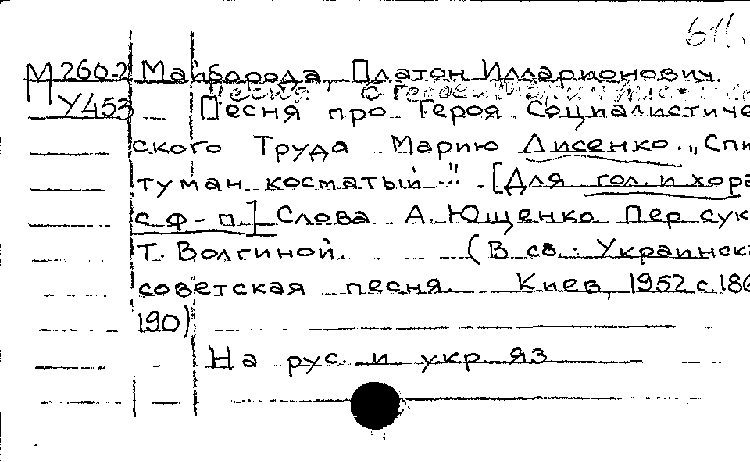 611.
М 260-2 Майборода, Платон Илларионович.
У453 Песня про Героя Социалистиче
ского Труда Марию Лисенко. „Спи
туман косматый..." [Для гол. и хора
с ф-п.] Слова А. Ющенко Пер с ук
Т. Волгиной. (В сб.: Украинск
советская песня. Киев, 1952 с. 186
190)
На рус. и укр яз